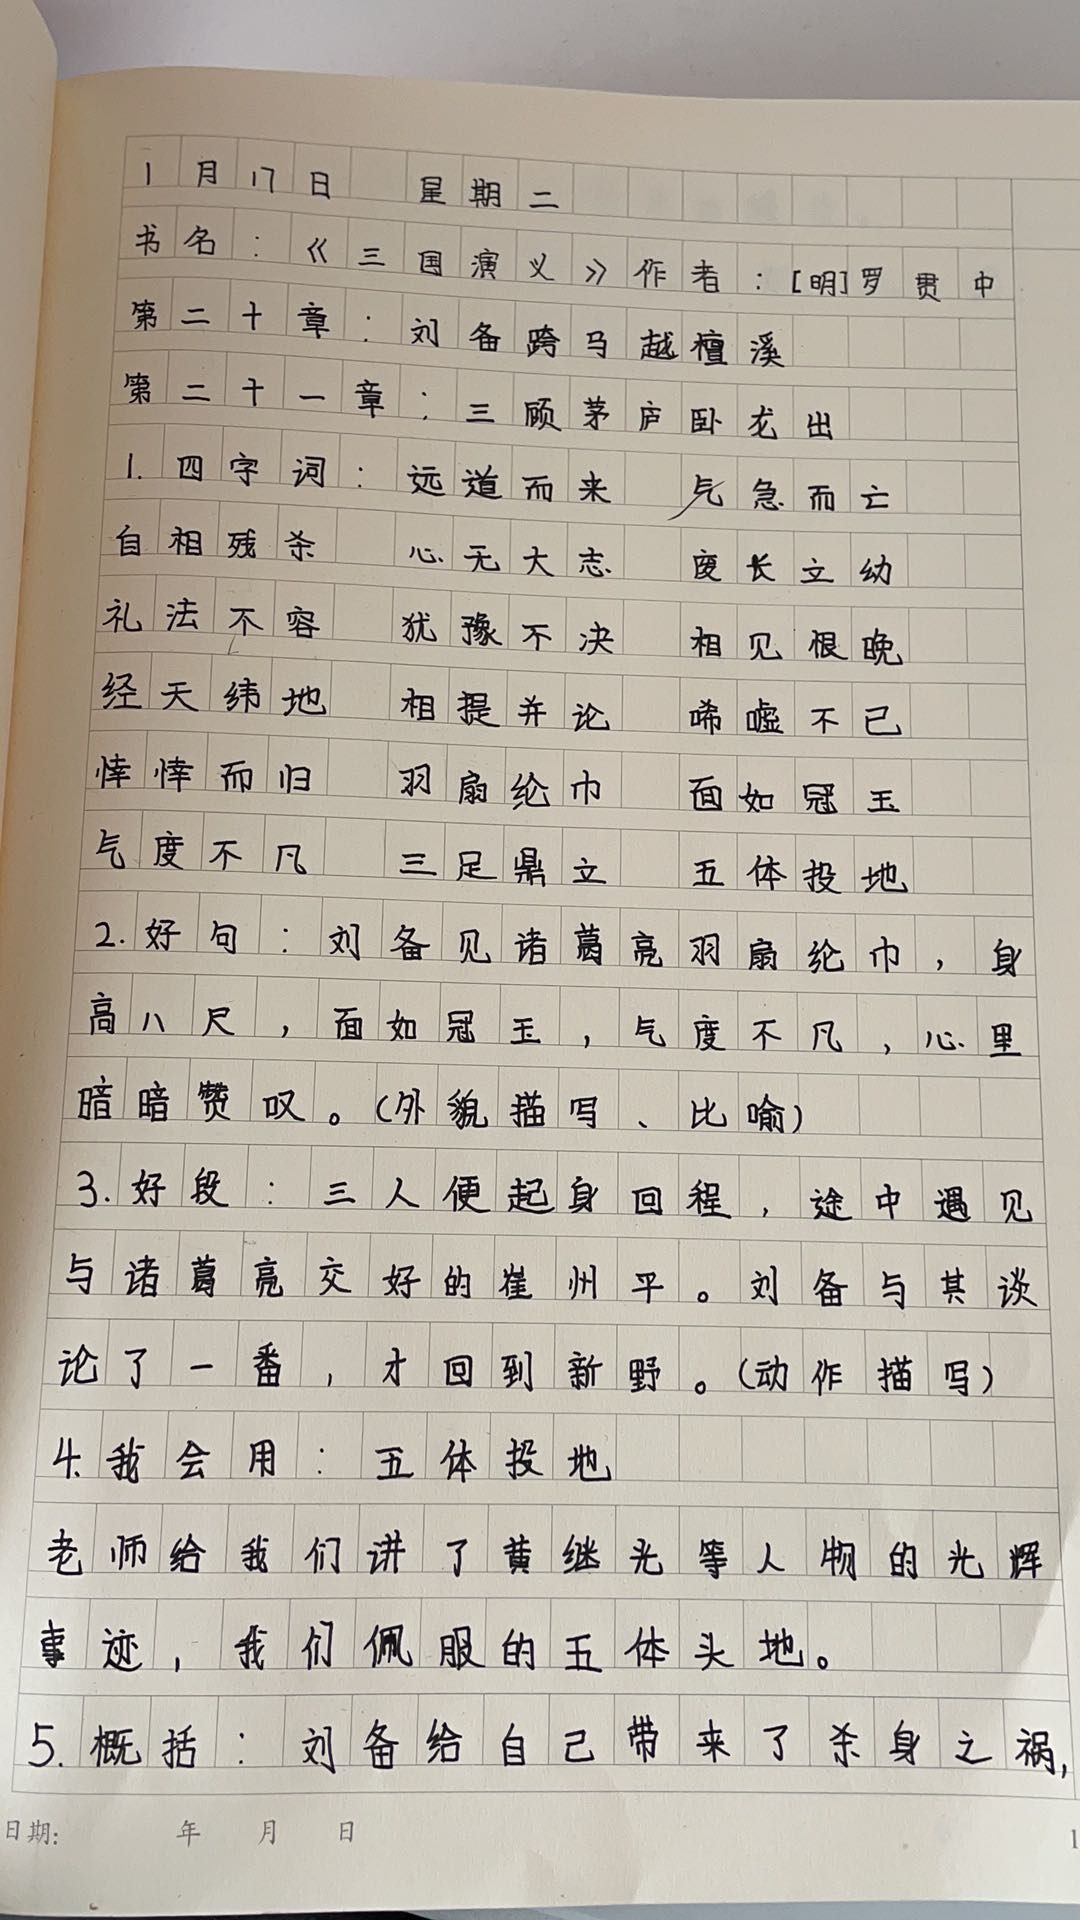 1月17日 星期二
书名：《三国演义》作者：[明]罗贯中
第二十章：刘备跨马越檀溪
第二十一章：三顾茅庐卧龙出
1.四字词：远道而来 气急而亡
自相残杀 心无大志 废长立幼
礼法不容 犹豫不决 相见恨晚
经天纬地 相提并论 唏嘘不已
悻悻而归 羽扇纶巾 面如冠玉
气度不凡 三足鼎立 五体投地
2.好句：刘备见诸葛亮羽扇纶巾，身
高八尺，面如冠玉，气度不凡，心里
暗暗赞叹。(外貌描写、比喻)
3.好段：三人便起身回程，途中遇见
与诸葛亮交好的崔州平。刘备与其谈
论了一番，才回到新野。(动作描写)
4.我会用：五体投地
老师给我们讲了黄继光等人物的光辉
事迹，我们佩服的五体头地。
5.概括：刘备给自己带来了杀身之祸，
日期： 年 月 日 1